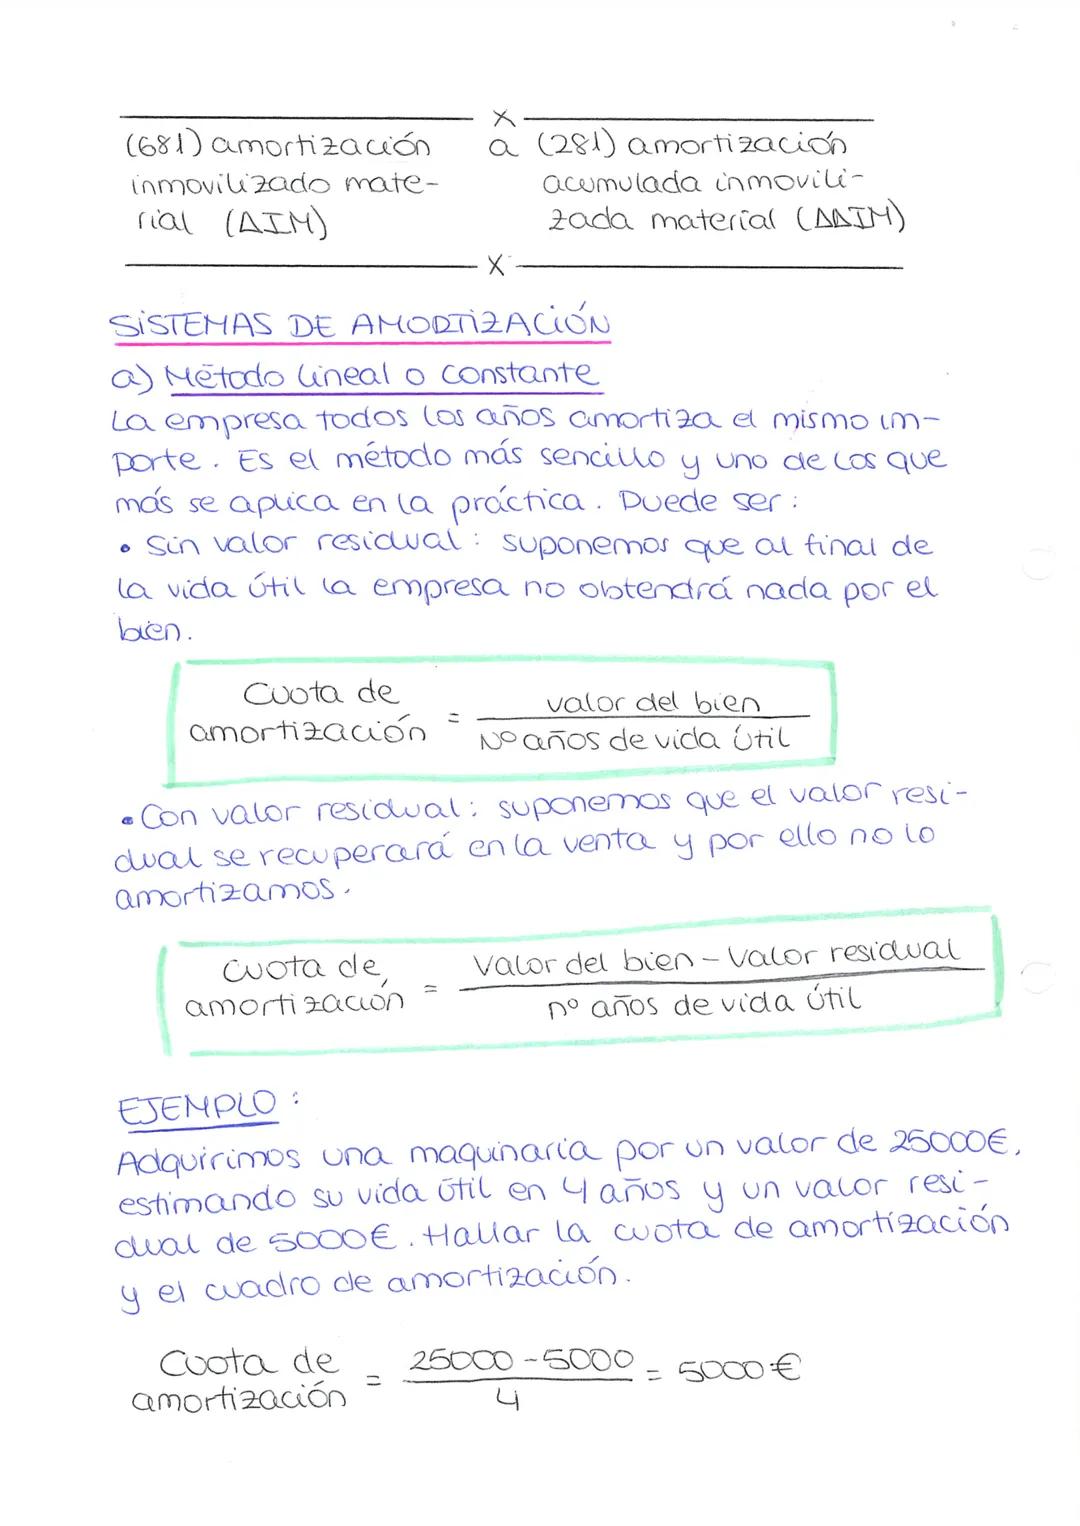 x
(681) amortización a (281) amortización
inmovilizado mate- acumulada inmovili-
rial (AIM) zada material (AAIM)
x
SISTEMAS DE AMORTIZACIÓN
a) Método lineal o constante
La empresa todos los años amortiza el mismo im-
porte. Es el método más sencillo y uno de los que
más se aplica en la práctica. Puede ser:
• Sin valor residual: suponemos que al final de
la vida útil la empresa no obtendrá nada por el
bien.
Cuota de amortización = valor del bien
Nº años de vida útil
• Con valor residual: suponemos que el valor resi-
dual se recuperará en la venta y por ello no lo
amortizamos.
Cuota de amortización = Valor del bien - Valor residual
nº años de vida útil
EJEMPLO:
Adquirimos una maquinaria por un valor de 25000€,
estimando su vida útil en 4 años y un valor resi-
dual de 5000€. Hallar la cuota de amortización
y el cuadro de amortización.
Cuota de amortización = 25000 - 5000 = 5000€
4